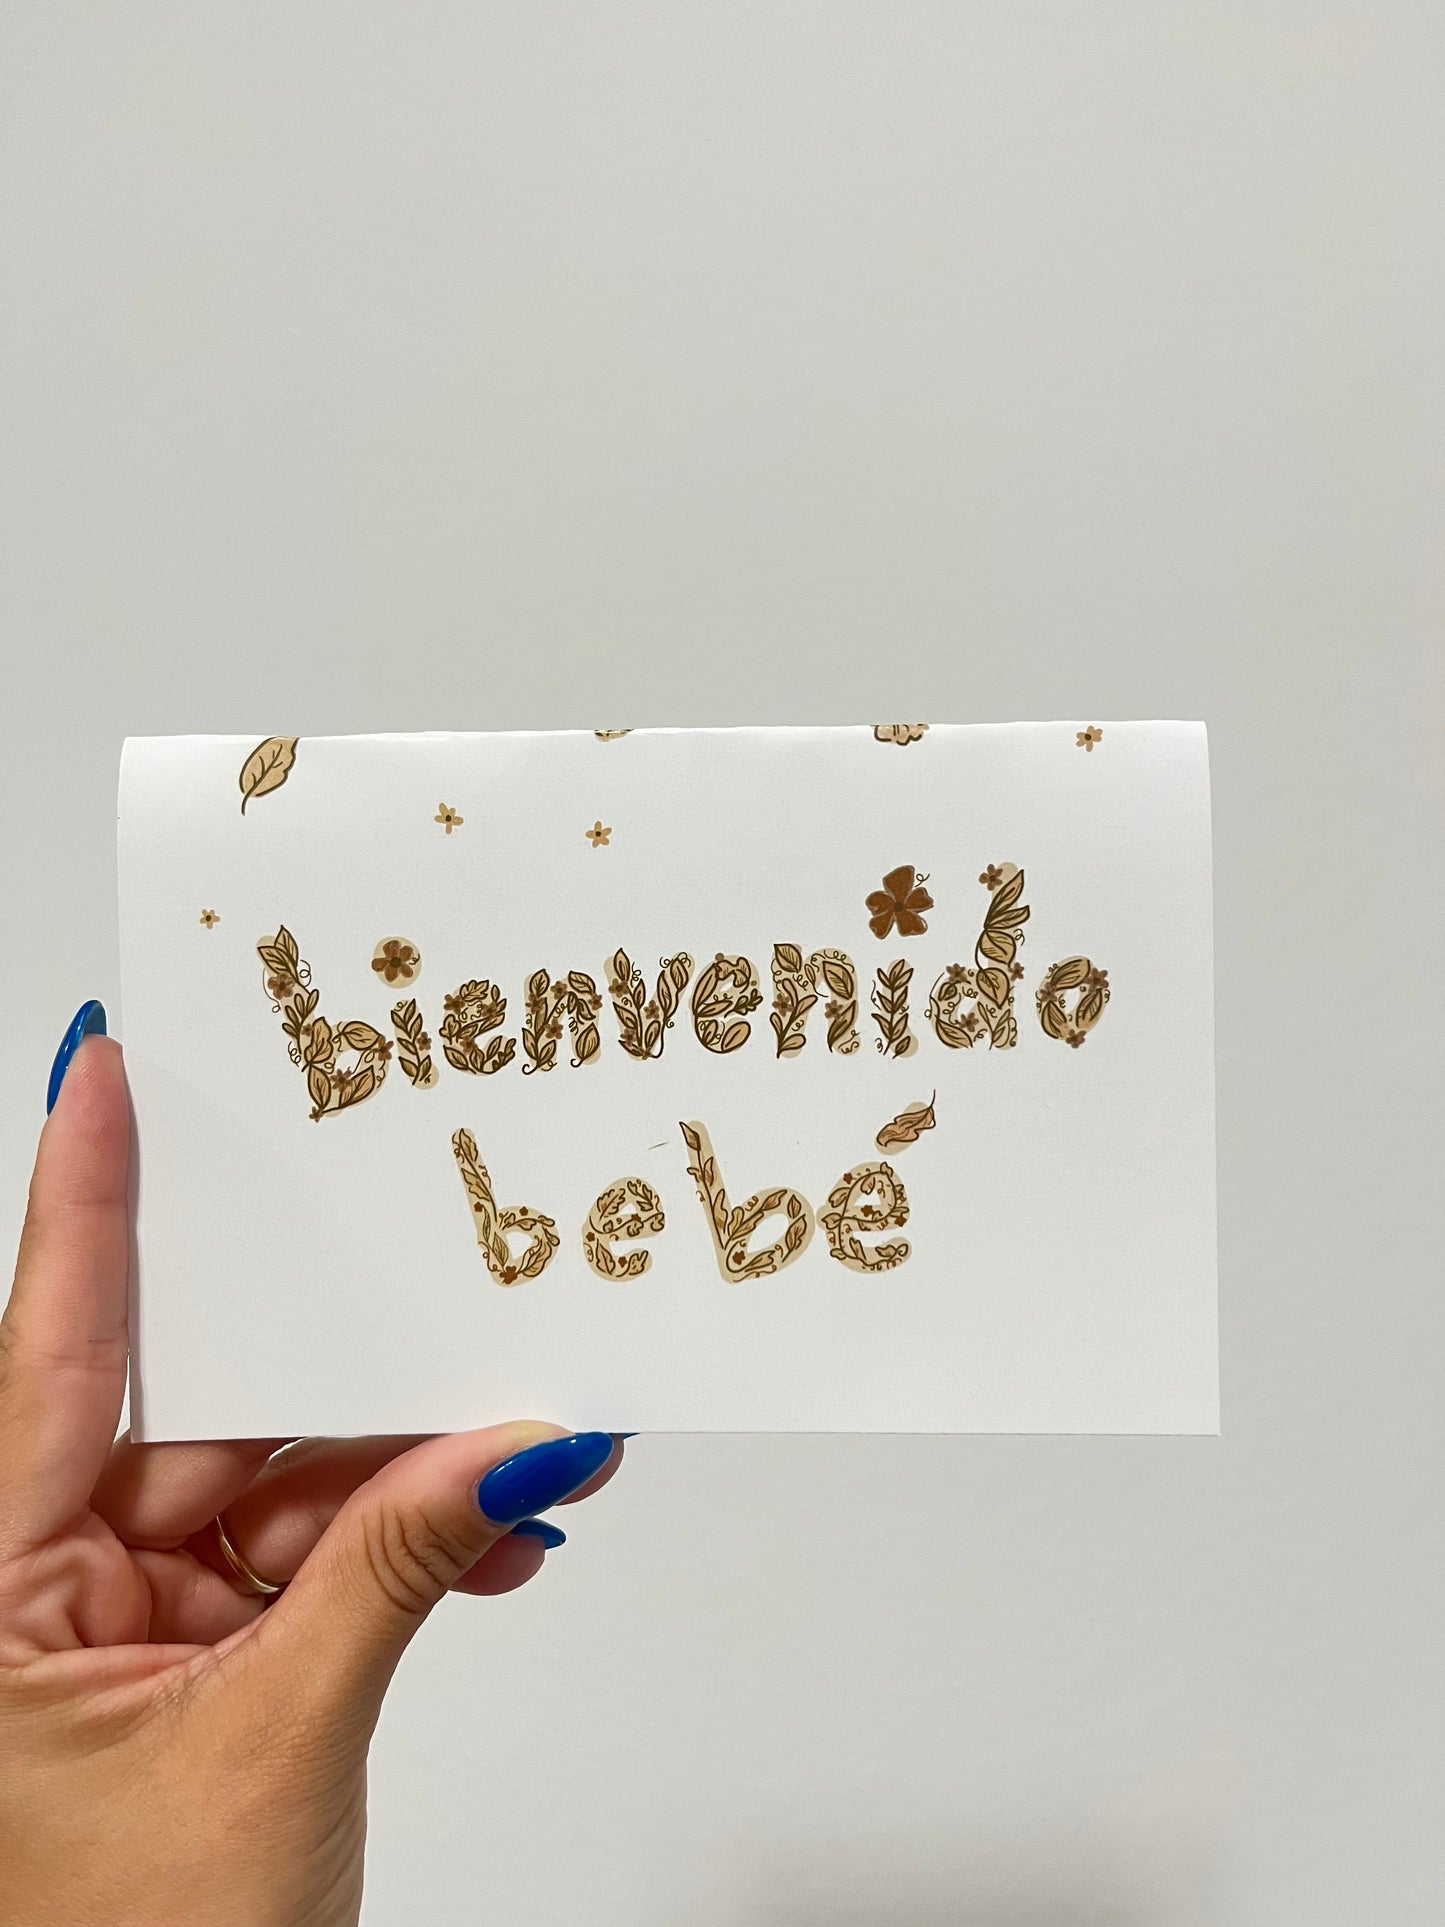 bienvenido
bebé